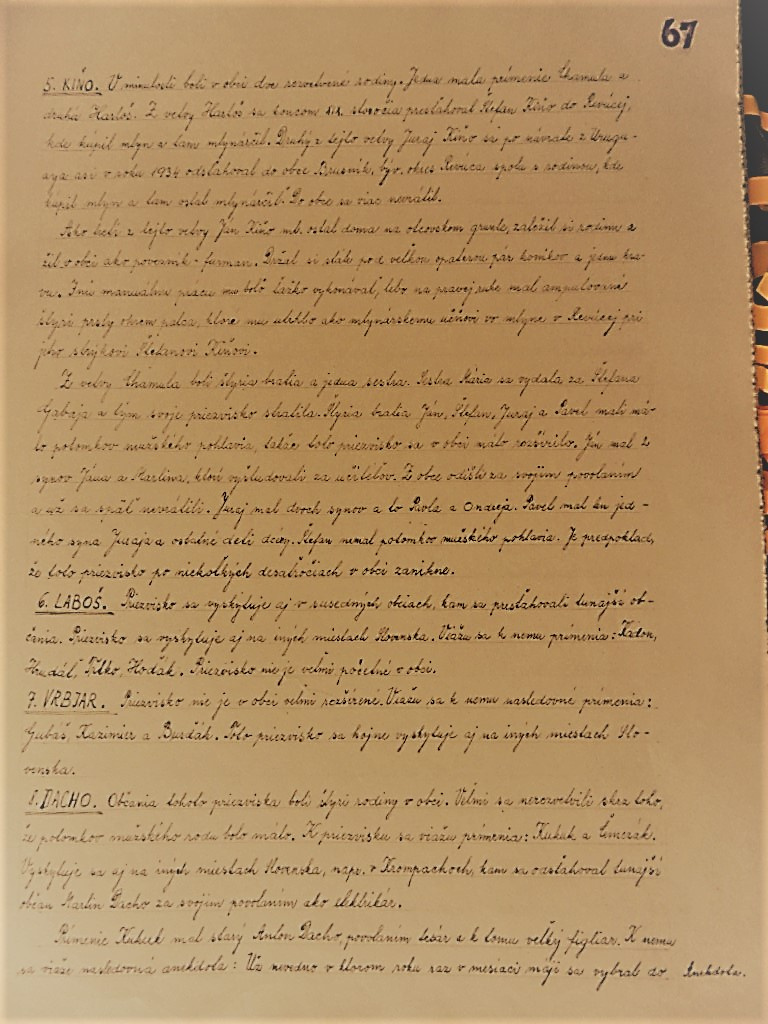 67
5. KIŇO. V minulosti boli v obci dve rozvetvené rodiny. Jedna mala prímenie Chamula a
druhá Harloš. Z vetvy Harloš sa koncom XIX. storočia presťahoval Štefan Kiňo do Revúcej,
kde kúpil mlyn a tam mlynárčil. Druhý z tejto vetvy Juraj Kiňo sa po návrate z Urugu-
aya asi v roku 1934 odsťahoval do obce Brusník, býv. okres Revúca spolu s rodinou, kde
kúpil mlyn a tam ostal mlynárčiť. Do obce sa viac nevrátil.
Ako tretí z tejto vetvy Ján Kiňo ml. ostal doma na otcovskom grunte, založil si rodinu a
žil v obci ako povozník - furman. Držal si stále pod veľkou opaterou pár koníkov a jednu kra-
vu. Inú manuálnu prácu mu bolo ťažko vykonávať, lebo na pravej ruke mal amputované
štyri prsty okrem palca, ktoré mu utrhlo ako mlynárskemu učňovi vo mlyne v Revúcej pri
jeho strýkovi Štefanovi Kiňovi.
Z vetvy Chamula boli štyria bratia a jedna sestra. Sestra Mária sa vydala za Štefana
Gabaja a tým svoje priezvisko stratila. Štyria bratia Ján, Štefan, Juraj a Pavel mali má-
lo potomkov mužského pohlavia, takže toto priezvisko sa v obci málo rozšírilo. Ján mal 2
synov Jána a Martina, ktorí vyštudovali za učiteľov. Z obce odišli za svojím povolaním
a už sa späť nevrátili. Juraj mal dvoch synov a to Pavla a Ondreja. Pavel mal len jed-
ného syna Juraja a ostatné deti dcéry. Štefan nemal potomkov mužského pohlavia. Je predpoklad,
že toto priezvisko po niekoľkých desaťročiach v obci zanikne.
6. LABOŠ. Priezvisko sa vyskytuje aj v susedných obciach, kam sa presťahovali tunajší ob-
čania. Priezvisko sa vyskytuje aj na iných miestach Slovenska. Viažu sa k nemu prímenia:
Hrudáľ, Hoďák. Priezvisko nie je veľmi početné v obci.
7. VRBJAR. Priezvisko nie je v obci veľmi rozšírené. Viažu sa k nemu nasledovné prímenia:
Gubáš, Kazimier a Burďák. Toto priezvisko sa hojne vyskytuje aj na iných miestach Slo-
venska.
8. DACHO. Občania tohoto priezviska boli štyri rodiny v obci. Veľmi sa nerozvetvili skrz toho,
že potomkov mužského rodu bolo málo. K priezvisku sa viažu prímenia: Kukuk a
Vyskytuje sa aj na iných miestach Slovenska, napr. v Krompachoch, kam sa odsťahoval tunajší
občan Martin Dacho za svojím povolaním ako elektrikár.
Prímenie Kukuk mal starý Anton Dacho, povolaním tesár a k tomu veľký figliar. K nemu
sa viaže nasledovná anekdota: Už nevedno v ktorom roku raz v mesiaci máji sa vybral do Anekdota.